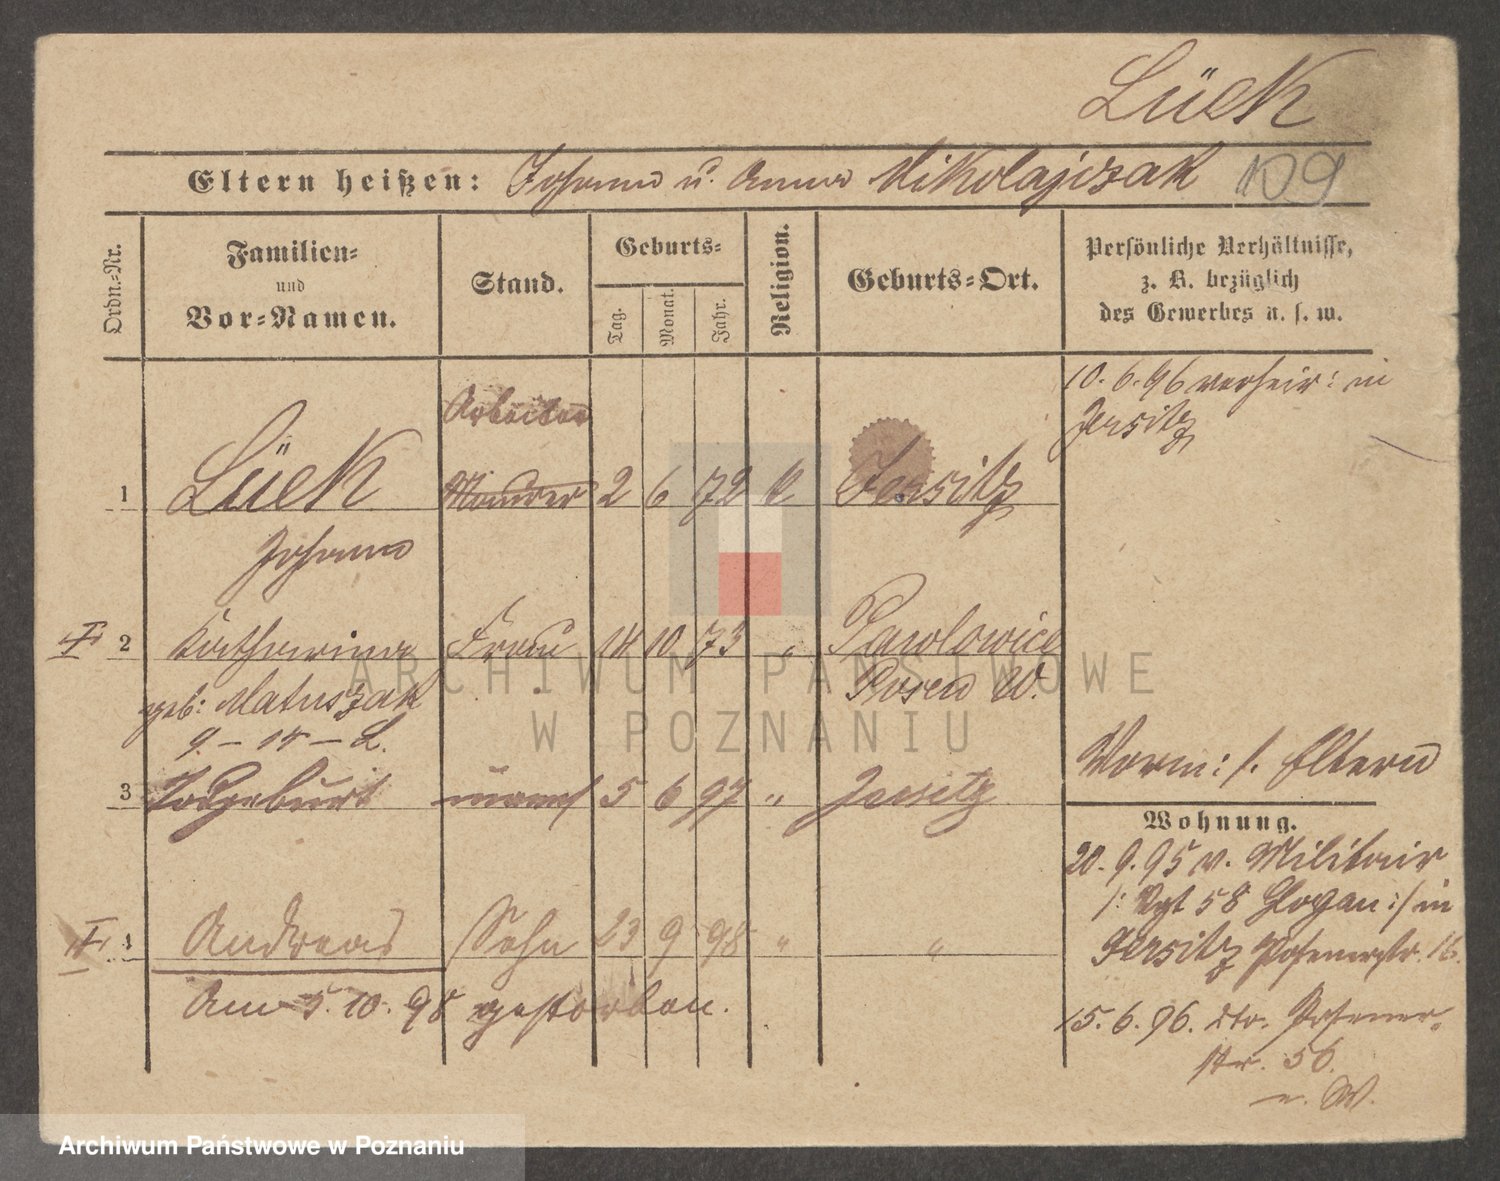 Lück
Eltern heißen: Johann u. Anna Mikolajczak 109
Ordn.-Nr.
Familien-
und
Vor-Namen.
Stand.
Geburts-
Tag.
Monat.
Jahr.
Religion.
Geburts-Ort.
Persönliche Verhältnisse,
z. B. bezüglich
des Gewerbes u. s. w.
10. 6. 96 verheir: in
Jersitz
Arbeiter
1 Lück Maurer 2 6 72 k Jersitz
Johann
I 2 Katharina Frau 14 10 73 " Pawlowice
geb: Matuszak Posen W.
3 Todgeburt 5 6 97 " Jersitz
Vorm: /. Eltern
Wohnung.
20. 9. 95 v. Militair
/: Rgt 58 Glogau :/ in
Jersitz Posenerstr. 16.
I 4 Andreas Sohn 23 9 98 " "
Am 5. 10. 98 gestorben.
15. 6. 96. dto. Posener-
str. 56.
ARCHIWUM PAŃSTWOWE
W POZNANIU
Archiwum Państwowe w Poznaniu